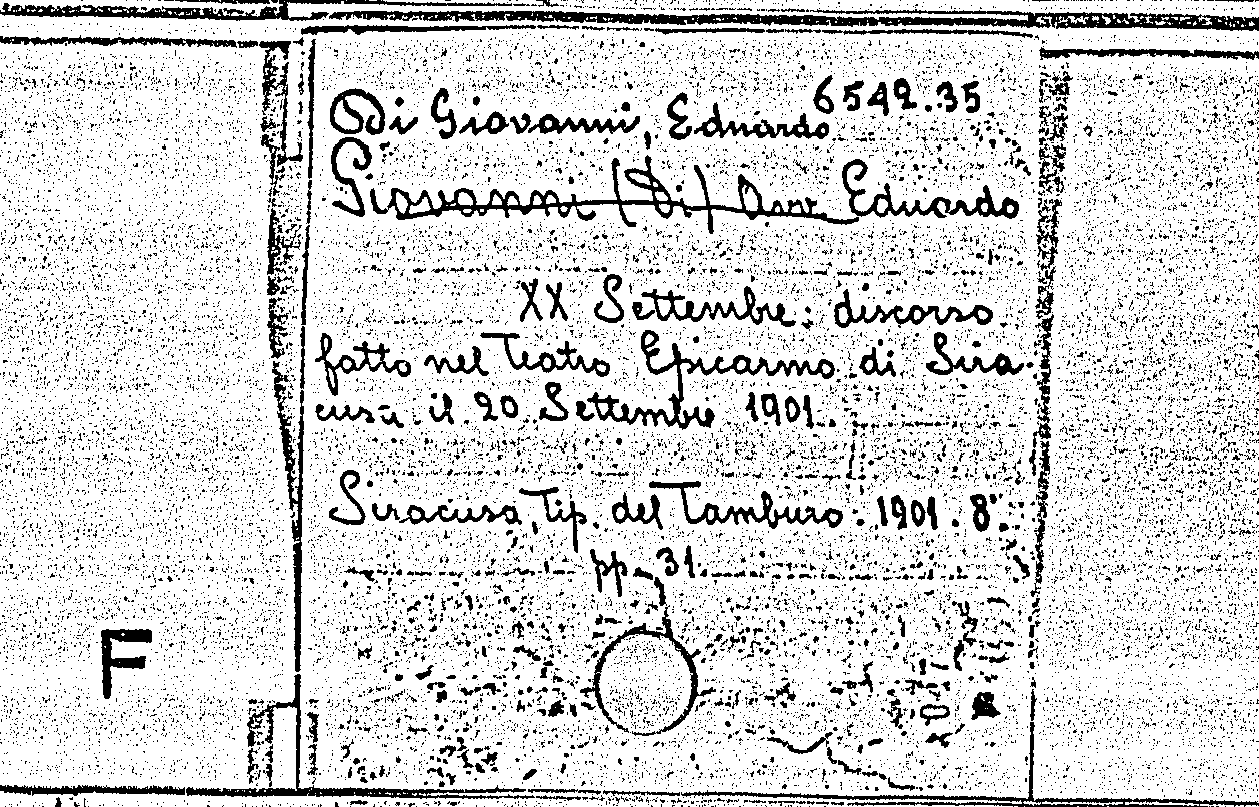 6542.35
Di Giovanni, Eduardo
Giovanni (Di) Avv. Eduardo
XX Settembre: discorso
fatto nel Teatro Epicarmo di Sira-
cusa il 20 Settembre 1901.
Siracusa, Tip. del Tamburo. 1901. 8°.
pp. 31.
F